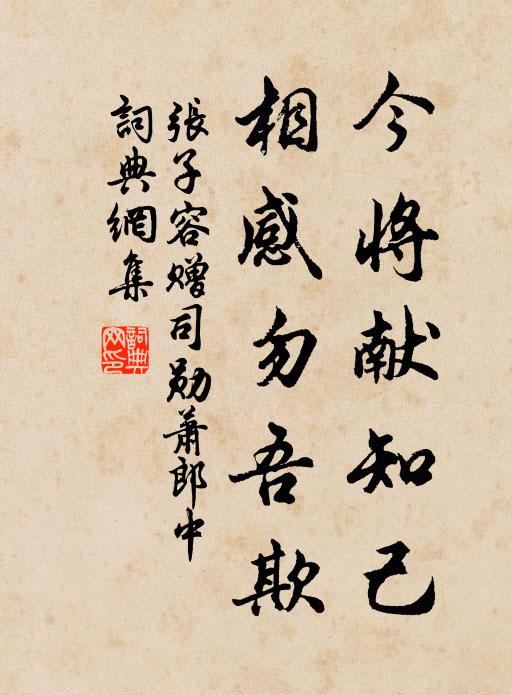 今将献知己
相感勿吾欺
張子容贈司勋蕭郎中
詞典網集
詞典网印